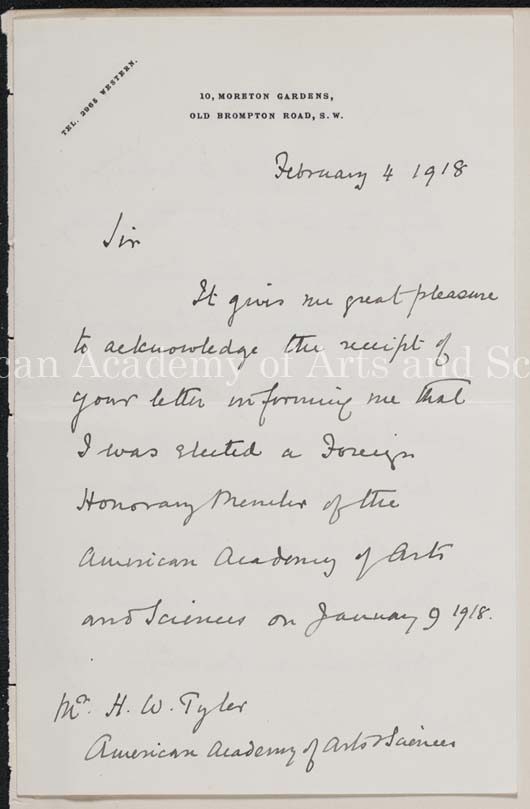 TEL. 2965 WESTERN.
10, MORETON GARDENS,
OLD BROMPTON ROAD, S.W.
February 4 1918
Sir
It gives me great pleasure
to acknowledge the receipt of
can Academy of Arts and Sc
your letter informing me that
I was elected a Foreign
Honorary Member of the
American Academy of Arts
and Sciences on January 9 1918.
Mr. H. W. Tyler
American Academy of Arts & Sciences